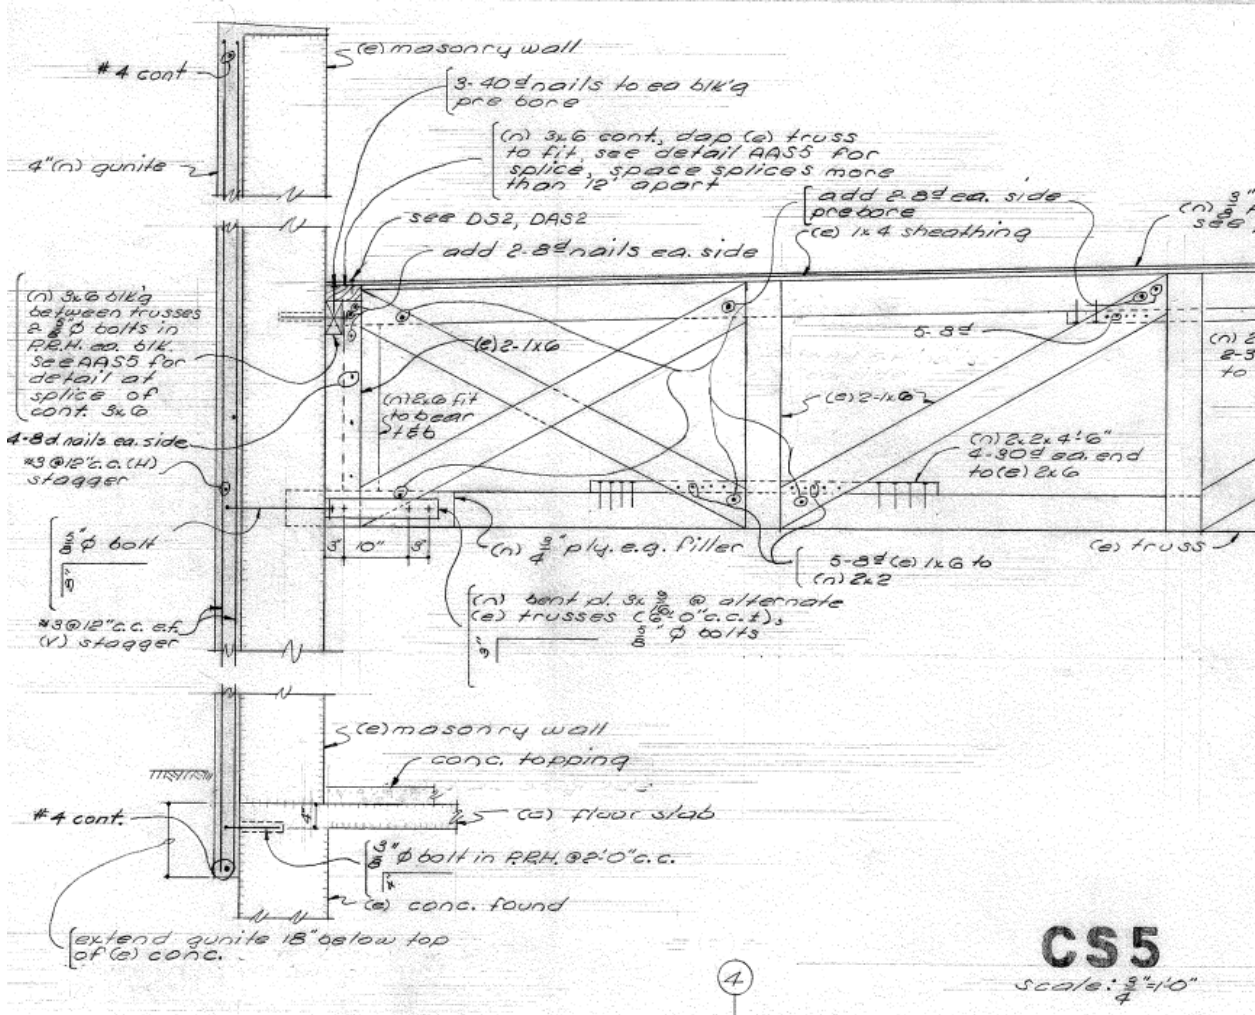 (e) masonry wall
#4 cont
3-40d nails to ea blk'g
pre bore
(n) 3x6 cont., dap (e) truss
to fit, see detail AAS5 for
splice, space splices more
than 12' apart
4"(n) gunite
see DS2, DAS2
add 2-8d nails ea. side
add 2-8d ea. side
prebore
(e) 1x4 sheathing
(n)
see
(n) 3x6 blk'g
between trusses
2- ø bolts in
P.R.H. ea. blk.
see AAS5 for
detail at
splice of
cont. 3x6
(e) 2-1x6
(n) 2x6 fit
to bear
t&b
5-8d
(e) 2-1x6
(n) 2
2-3
to
4-8d nails ea. side
#3@12"c.c.(H)
stagger
(n) 2x2x4'-6"
4-30d ea. end
to (e) 2x6
ø bolt
8"
3" 10" 3"
(n) 3/4" ply. e.g. filler
5-8d (e) 1x6 to
(n) 2x2
(e) truss
#3@12"c.c. e.f.
(V) stagger
(n) bent pl. 3x 3/16 @ alternate
(e) trusses (6'-0"c.c.±),
ø bolts
9"
(e) masonry wall
conc. topping
#4 cont.
4"
(e) floor slab
ø bolt in P.R.H. @2'-0"c.c.
(e) conc. found
extend gunite 18" below top
of (e) conc.
4
CS5
scale: 3/4"=1'0"